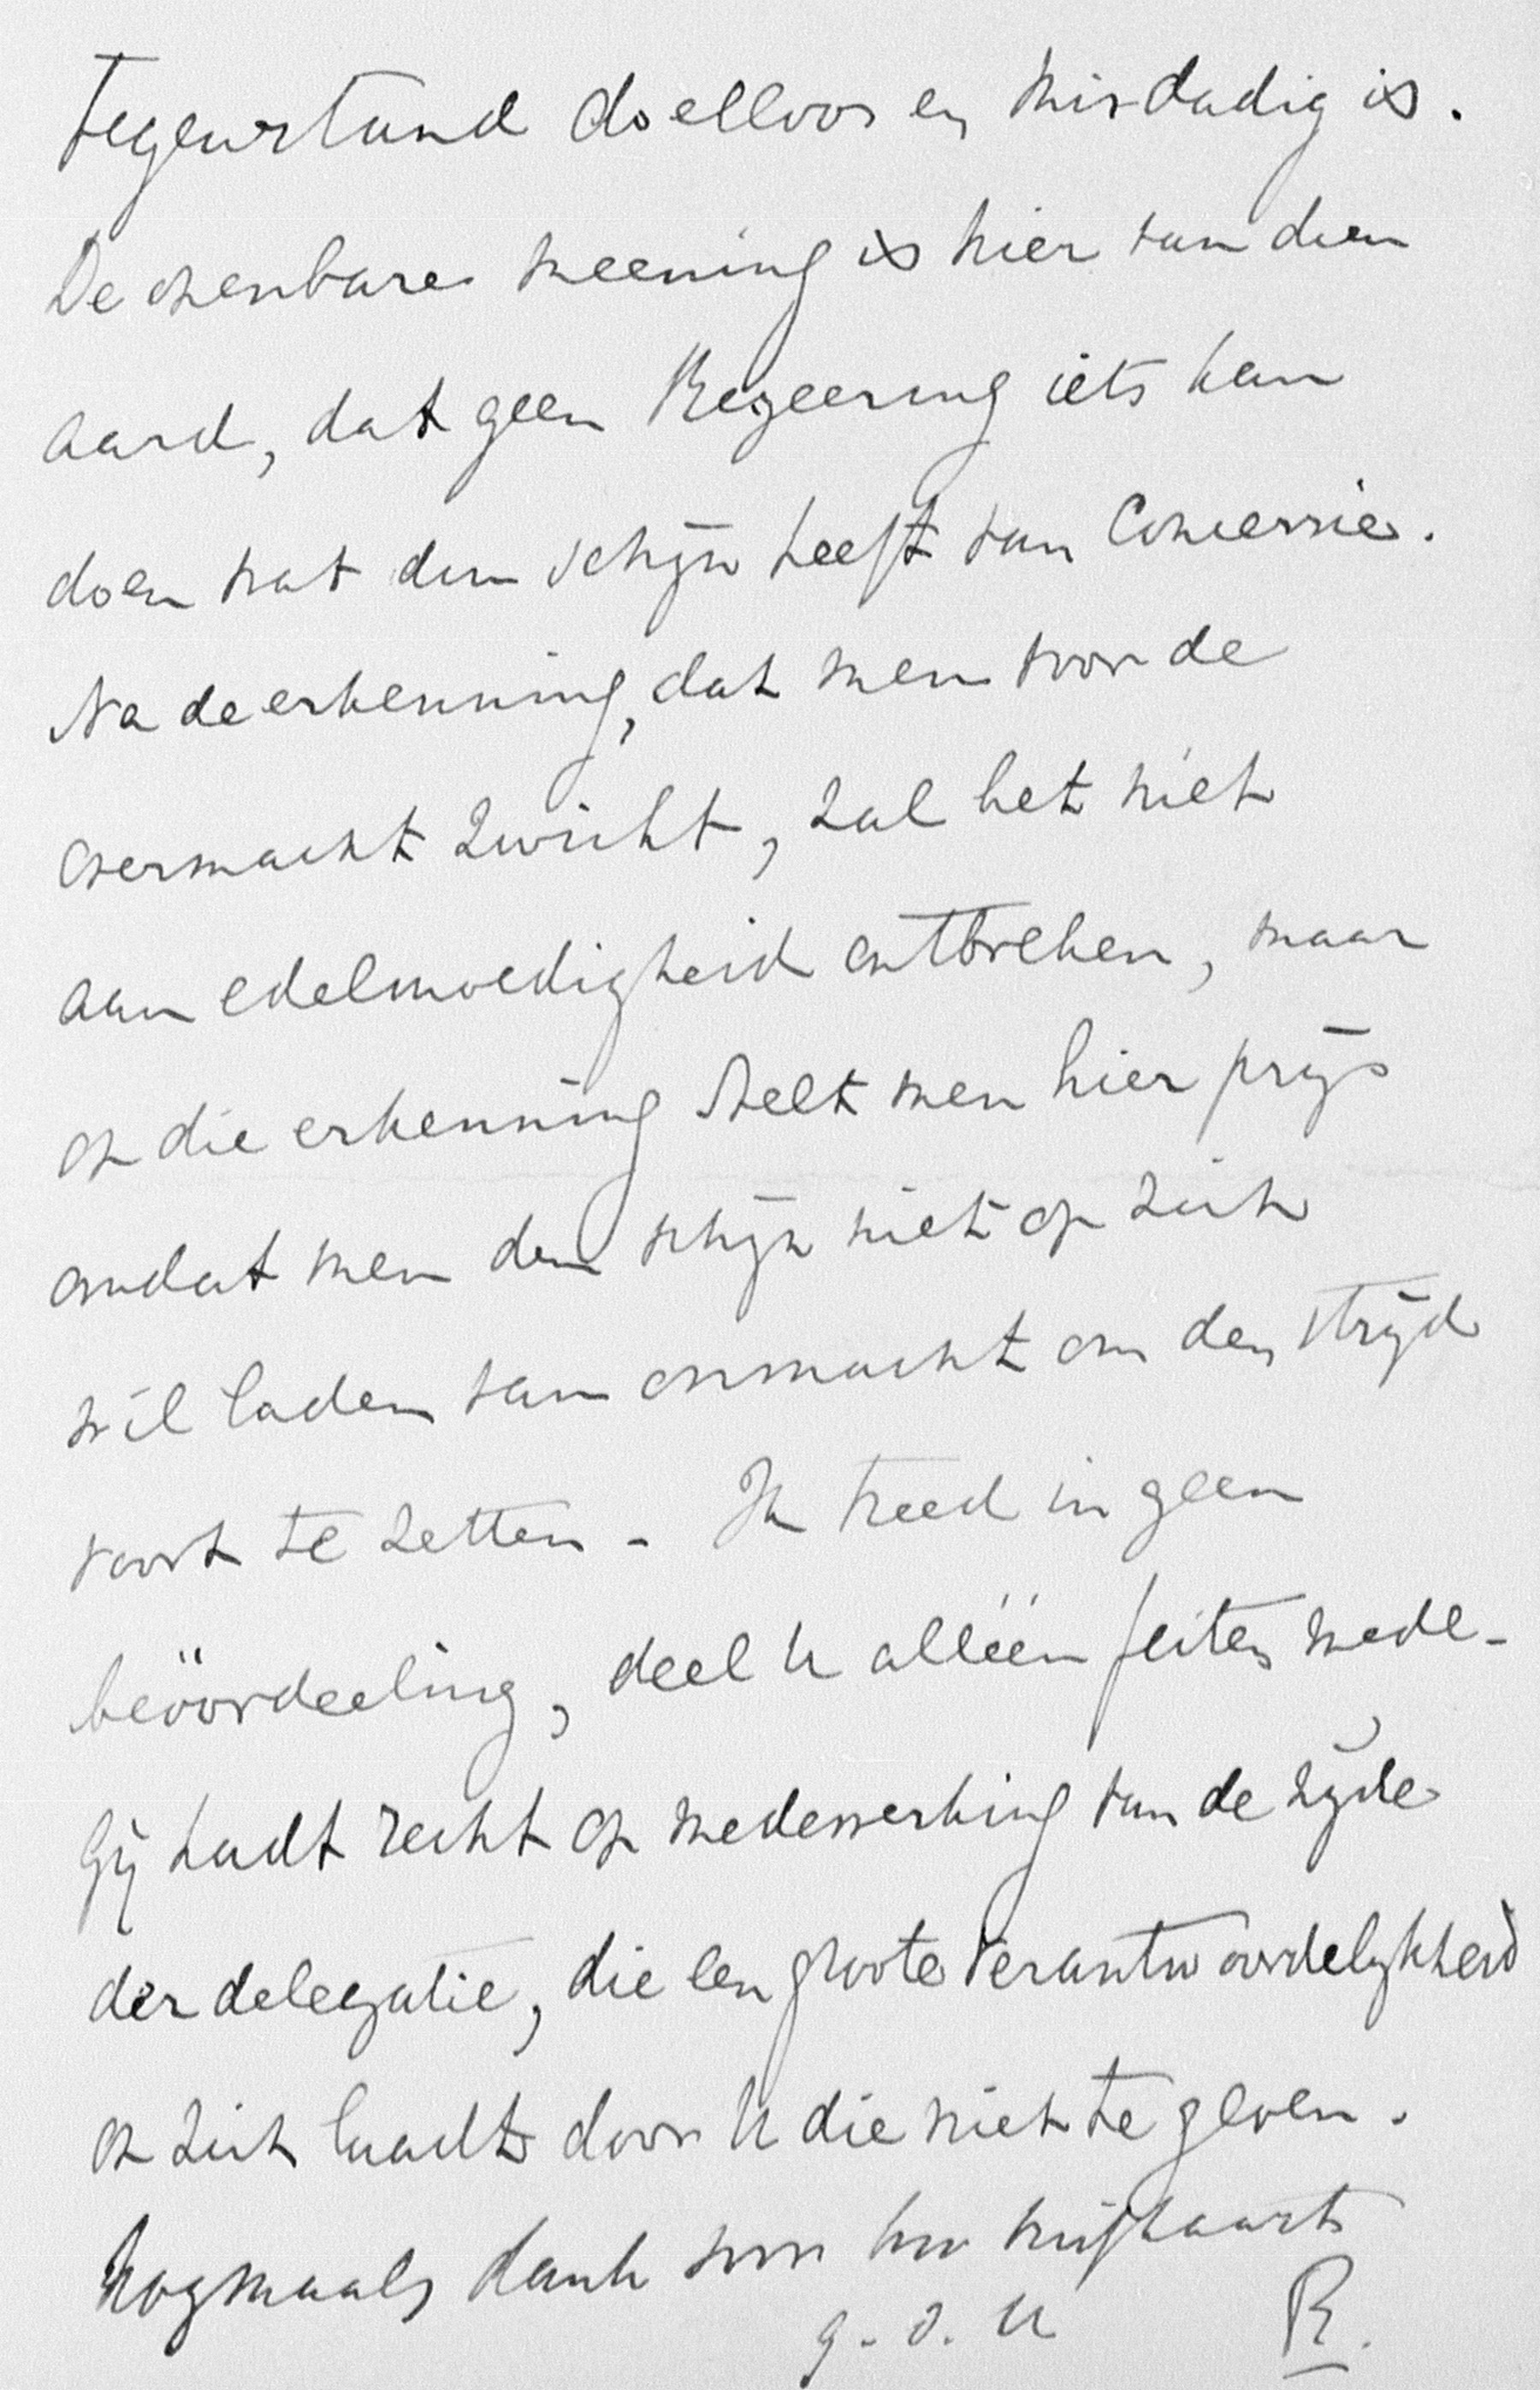 tegenstand doelloos en misdadig is.
De openbare meening is hier van dien
aard, dat geen Regeering iets kan
doen wat den schijn heeft van Concessie.
Na de erkenning, dat men voor de
overmacht zwicht, zal het niet
aan edelmoedigheid ontbreken, maar
op die erkenning stelt men hier prijs
omdat men den schijn niet op zich
wil laden van onmacht om den strijd
voort te zetten - Ik treed in geen
beöordeeling, deel U alléén feiten mede -
Gij hadt recht op medewerking van de zijde
der delegatie, die een groote verantwoordelijkheid
op zich laadt door U die niet te geven.
Nogmaals dank voor uw briefkaart
g. v. U R.